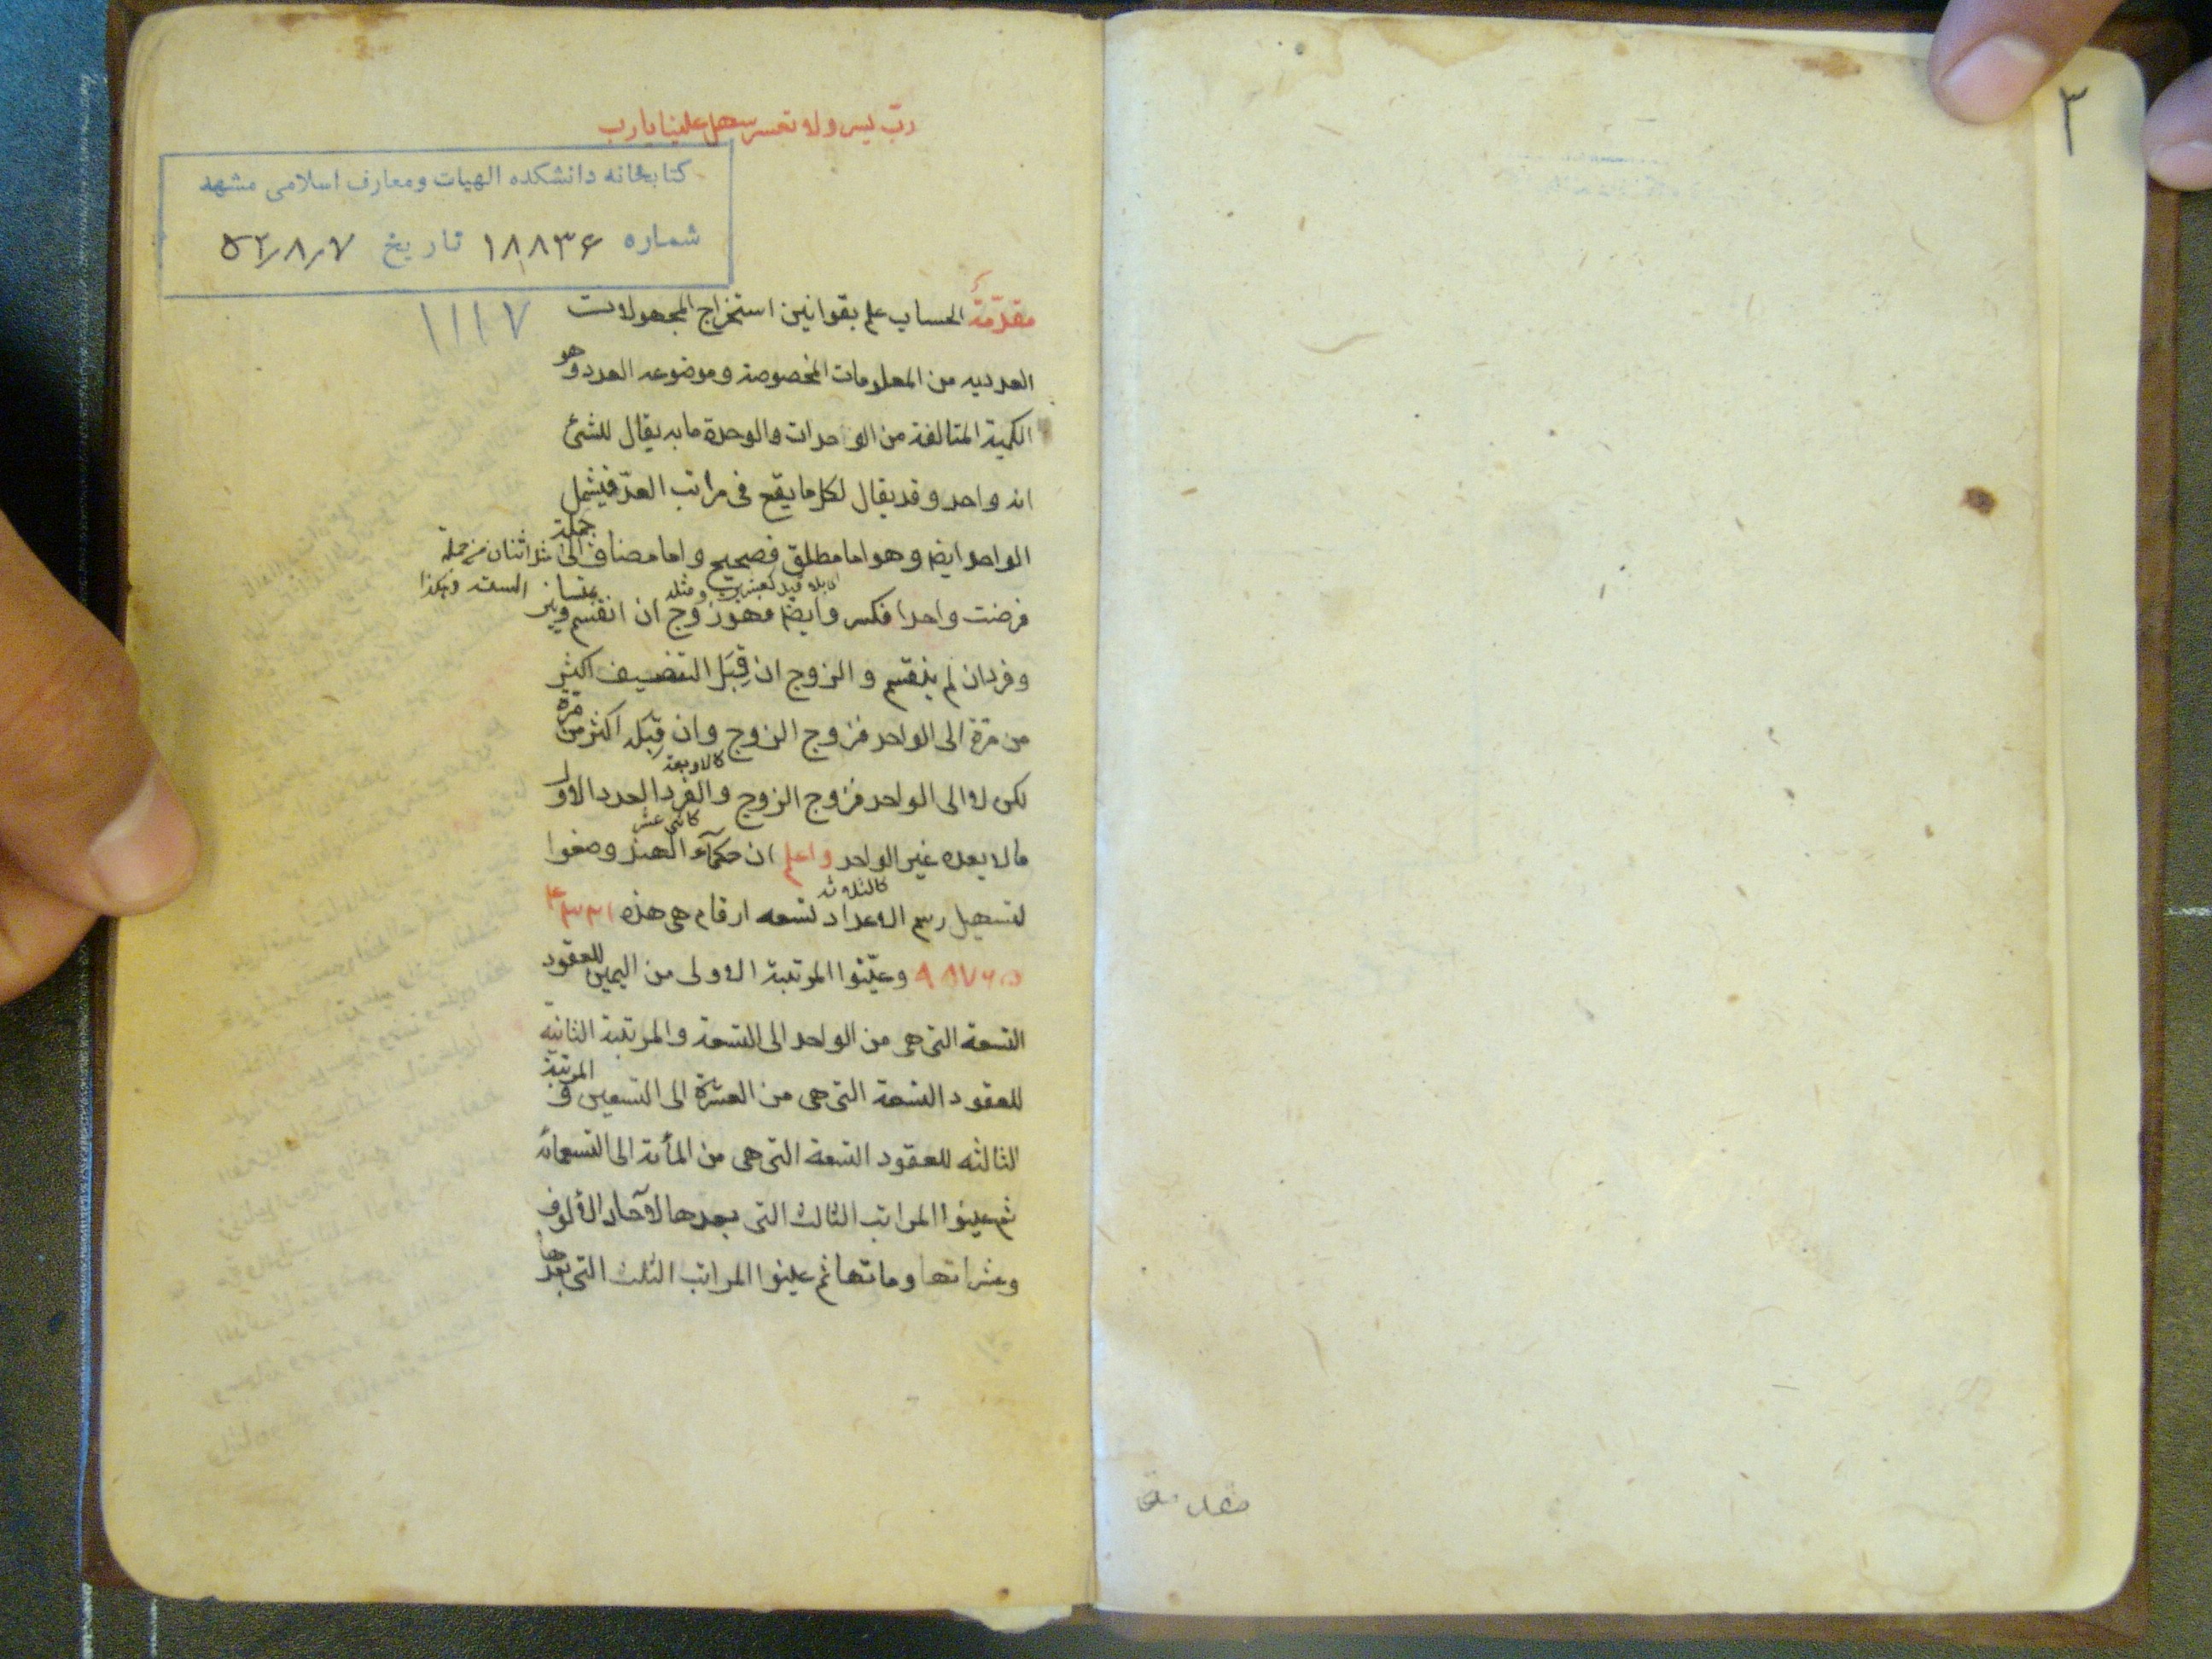 ٣
مقدمة
ربّ يسر ولا تعسر سهل علينا يا رب
كتابخانه دانشكده الهيات ومعارف اسلامى مشهد
شماره ١٨٨٣۶ تاريخ ٥٢/٨/٧
١١١٧
مقدّمة الحساب علم بقوانين استخراج المجهولات
العدديه من المعلومات المخصوصة وموضوعه العدد وهو
الكمية المتالفة من الوحدات والوحدة ما به يقال للشئ
انه واحد وقد يقال لكل ما يقع فى مراتب العدّ فيشمل
الواحد ايضا وهو اما مطلق فصحيح واما مضاف الى جملة
مثلا اثنان من جملة
الستة وهكذا
فرضت واحدا فكسر وايضا فهو زوج ان انقسم بمتساويين
وفرد ان لم ينقسم والزوج ان قِبَل التنصيف اكثر
من مرّة الى الواحد فزوج الزوج وان قِبَله اكثر من مرّة
كالاربعة
لكن لا الى الواحد فزوج الزوج والفرد العدد الاول
كاثنى عشر
ما لا يعده غير الواحد واعلم ان حكمآء الهند وضعوا
كالثلاثه
لتسهيل رسم الاعداد تسعه ارقام هى هذه ١ ٢ ٣ ۴
٥ ۶ ٧ ٨ ٩ وعيّنوا المرتبة الاولى من اليمين للعقود
التسعة التى هى من الواحد الى التسعة والمرتبة الثانيه
للعقود التسعة التى هى من العشرة الى التسعين والمرتبة
الثالثه للعقود التسعة التى هى من المأة الى التسعمائة
ثم عينوا المراتب الثالث التى بعدها لآحاد الألوف
وعشراتها وماتها ثم عينوا المراتب الثلث التى بعدها